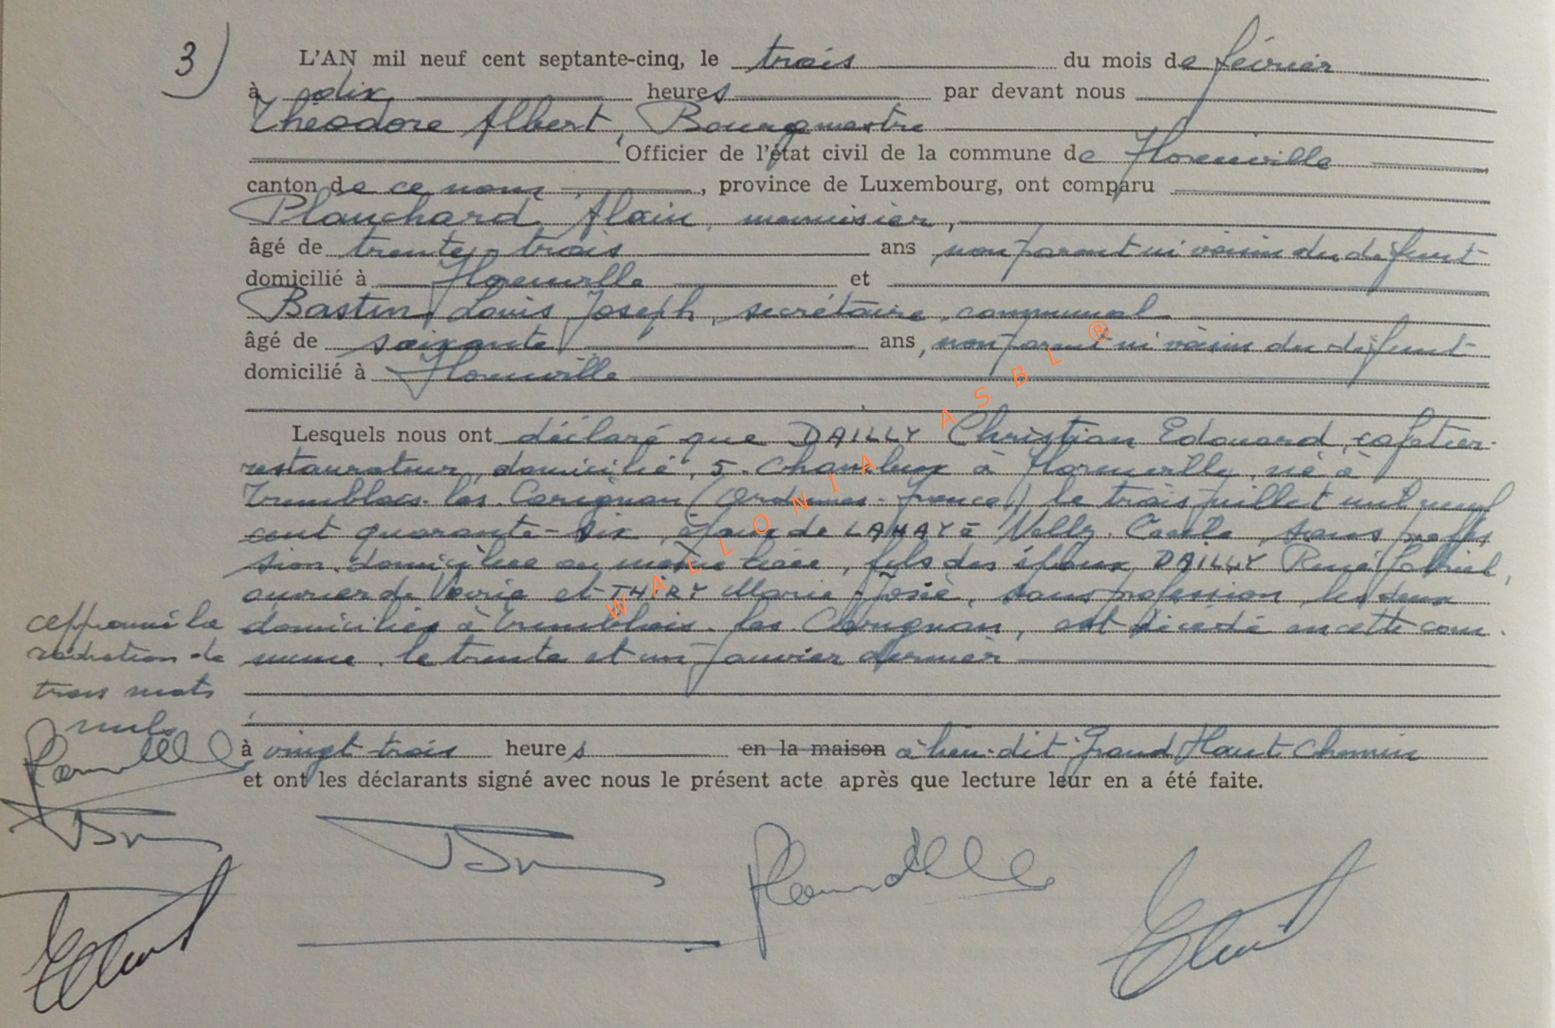 3)
L'AN mil neuf cent septante-cinq, le trois du mois de février
à dix heures par devant nous
Théodore Albert, Bourgmestre
Officier de l'état civil de la commune de Florenville
canton de ce nom, province de Luxembourg, ont comparu
Planchard Alain, menuisier,
âgé de trente-trois ans non parent ni voisin du défunt
domicilié à Florenville et
Bastin Louis Joseph, secrétaire communal
âgé de soixante ans, non parent ni voisin du défunt
domicilié à Florenville
Lesquels nous ont déclaré que DAILLY Christian Edouard, cafetier-
restaurateur, domicilié, 5, à Florenville, né à
les Carignan (Ardennes - France) le trois juillet mil neuf
cent quarante-six, époux de LAHAYE Nelly Cécile, sans profes
sion, domiciliée au même lieu, fils des époux DAILLY René Gabriel,
ouvrier de Voirie et THIRY Marie Josée, sans profession, les deux
domiciliés à Tremblois les Carignan, est décédé en cette com-
mune, le trente et un janvier dernier
à vingt trois heures en la maison à lieu-dit Grand Haut Chemin
et ont les déclarants signé avec nous le présent acte après que lecture leur en a été faite.
approuvé la
radiation de
trois mots
nuls
WALLONIA ASBL ®